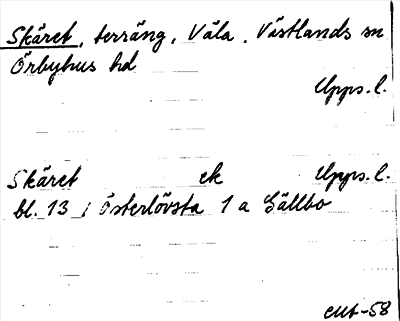 Skäret, terräng, Väla, Västlands sn
Örbyhus hd
Upps. l.
Skäret ek Upps. l.
bl. 13 Österlövsta 1 a Gällbo
-58